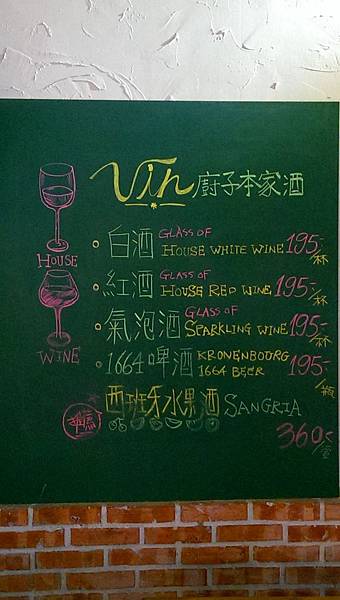 Vin 廚子本家酒
HOUSE
WINE
·白酒 GLASS OF HOUSE WHITE WINE 195-/杯
·紅酒 GLASS OF HOUSE RED WINE 195-/杯
·氣泡酒 GLASS OF SPARKLING WINE 195-/杯
·1664啤酒 KRONENBOURG 1664 BEER 195-/瓶
西班牙水果酒 SANGRIA
360-/壺